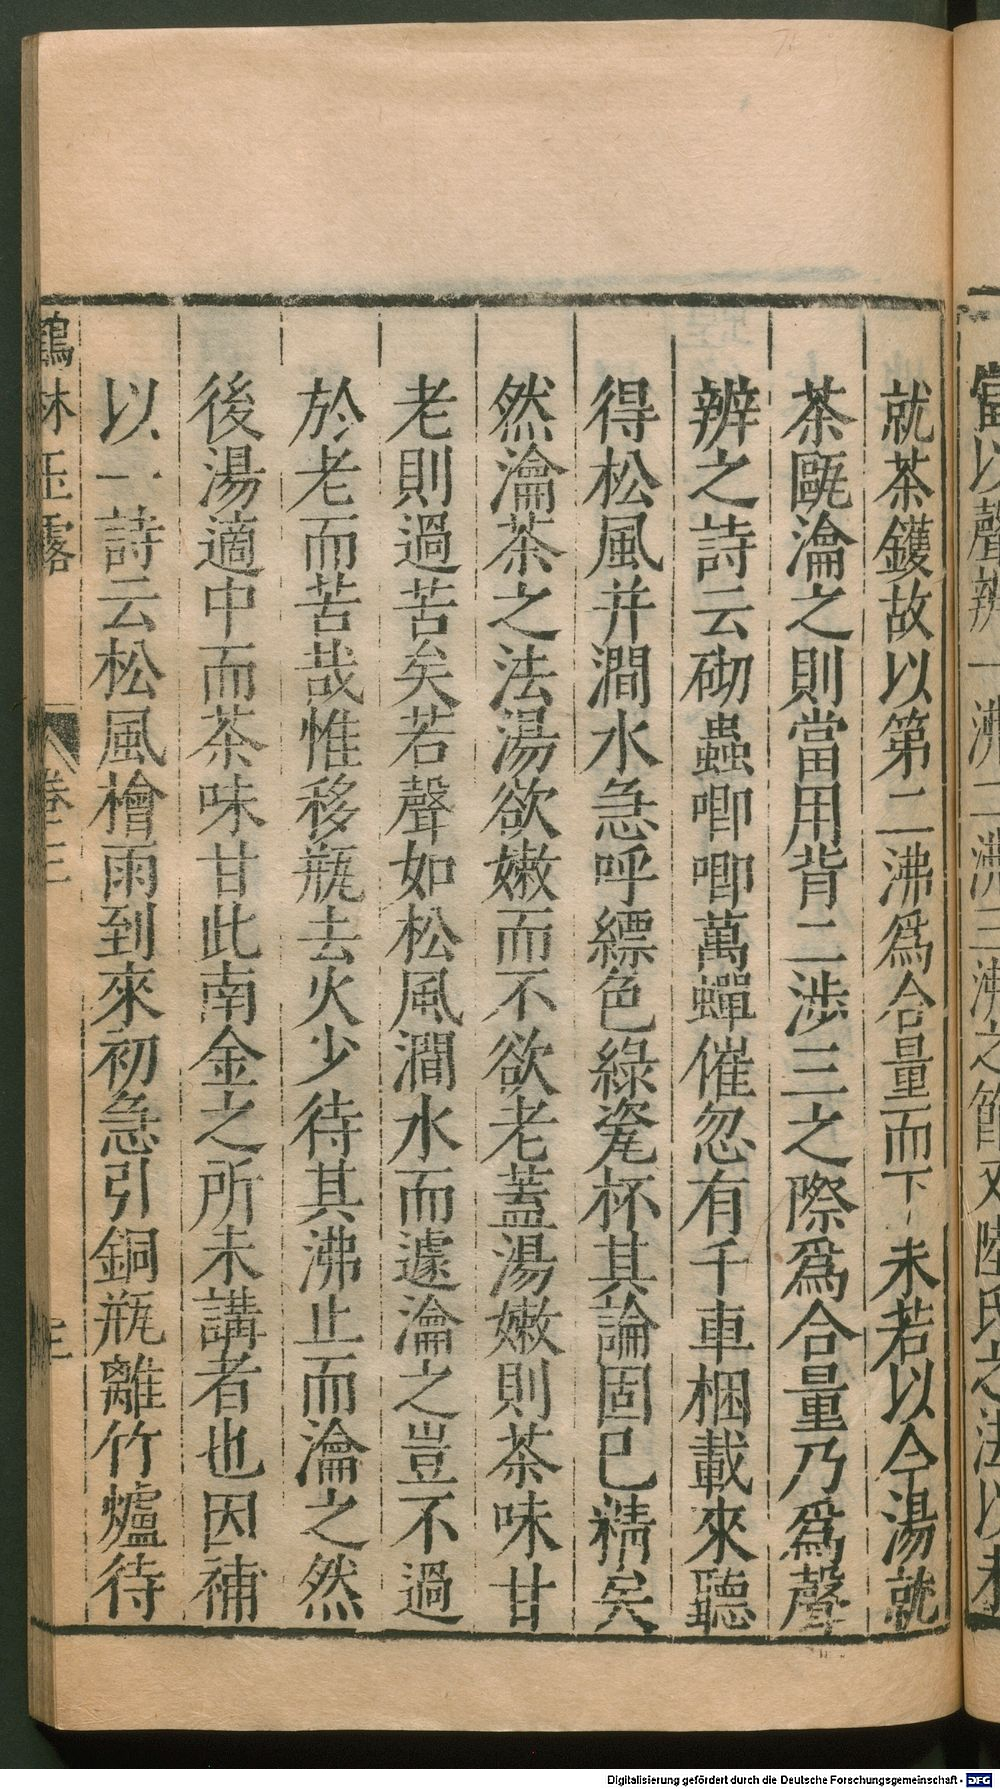 當以聲辨一沸二沸三沸之節又陸氏之法以未
就茶鑊故以第二沸爲合量而下未若以今湯就
茶甌瀹之則當用背二涉三之際爲合量乃爲聲
辨之詩云砌蟲唧唧萬蟬催忽有千車梱載來聽
得松風并澗水急呼縹色綠瓷杯其論固已精矣
然瀹茶之法湯欲嫩而不欲老蓋湯嫩則茶味甘
老則過苦矣若聲如松風澗水而遽瀹之豈不過
於老而苦哉惟移瓶去火少待其沸止而瀹之然
後湯適中而茶味甘此南金之所未講者也因補
以一詩云松風檜雨到來初急引銅瓶離竹爐待
鶴林玉露 卷三 三
Digitalisierung gefördert durch die Deutsche Forschungsgemeinschaft - DFG